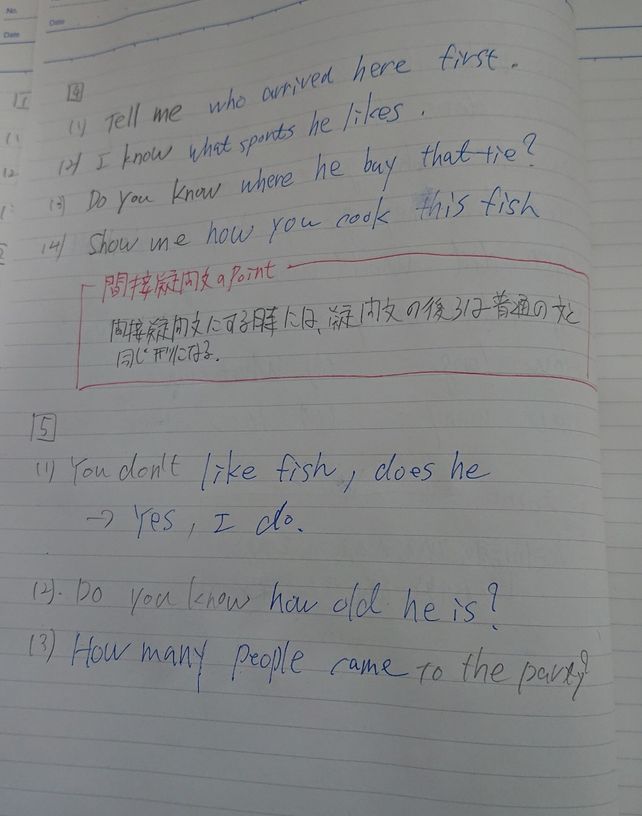 No.
Date
Date
4
(1) Tell me who arrived here first.
(2) I know what sports he likes.
(3) Do you know where he buy that tie?
(4) Show me how you cook this fish
間接疑問文のPoint
間接疑問文にする時には、疑問文の後ろは普通の文と
同じ形になる.
5
(1) You don't like fish, does he
→ Yes, I do.
(2). Do you know how old he is?
(3) How many people came to the party?